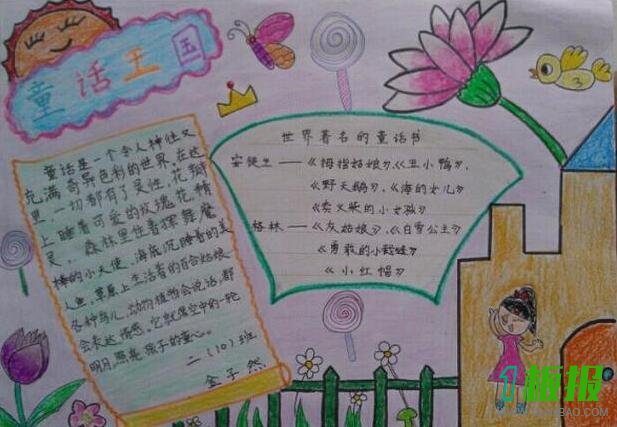 童话王国
童话是一个令人神往又
充满奇异色彩的世界,在这
里,一切都有了灵性,花瓣
上睡着可爱的玫瑰花精
灵,森林里住着挥舞魔
棒的小天使,海底沉睡着的美
人鱼,草原上生活着的百合姑娘
各种鸟儿,动物植物会说话,都
会表达情感。它就像空中的一轮
明月,照亮孩子的童心。
二(10)班
金子然
世界著名的童话书
安徒生——《拇指姑娘》,《丑小鸭》,
《野天鹅》,《海的女儿》
《卖火柴的小女孩》
格林——《灰姑娘》,《白雪公主》
《勇敢的小裁缝》
《小红帽》
板报